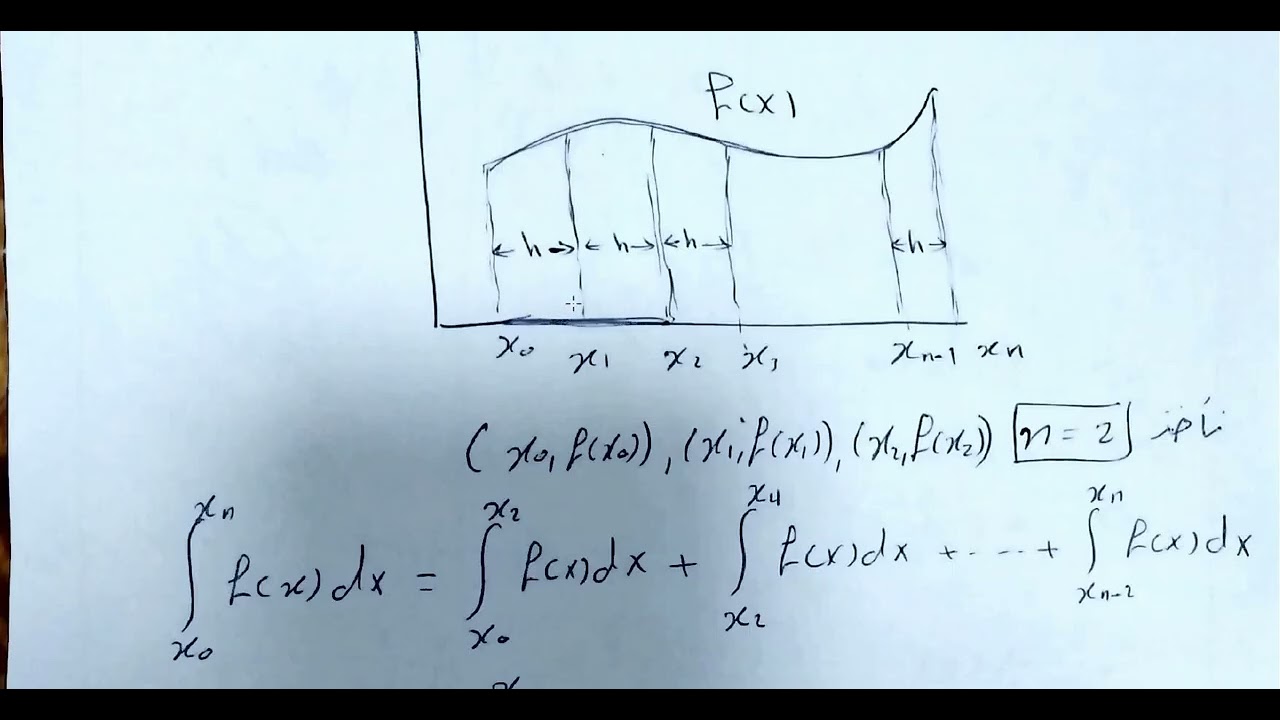 f(x)
h h h h
x₀ x₁ x₂ x₃ xₙ₋₁ xₙ
(x₀, f(x₀)), (x₁, f(x₁)), (x₂, f(x₂)) n = 2 نأخذ
∫ₓ₀ˣⁿ f(x)dx = ∫ₓ₀ˣ² f(x)dx + ∫ₓ₂ˣ⁴ f(x)dx + ... + ∫ₓₙ₋₂ˣⁿ f(x)dx